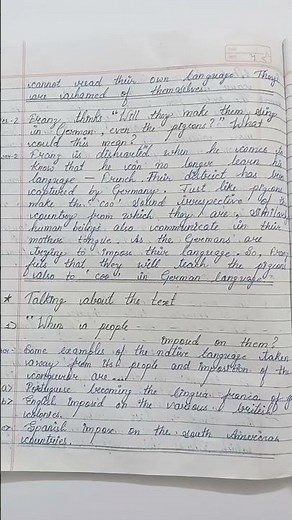 cannot read their own language. They
are ashamed of themselves.
Franz thinks "Will they make them sing
in German, even the pigeons?" What
could this mean?
Franz is disheartened when he comes to
know that he can no longer learn his
language - French. Their district has been
captured by Germany. Just like pigeons
make the "coo" sound irrespective of the
country from which they are, similarly
human beings also communicate in their
mother tongue. As the Germans are
trying to impose their language. So, Franz
feels that they will teach the pigeons
also to 'coo' in German language.
* Talking about the text
1) "When a people
imposed on them?
Some examples of the native language taken
away from its people and imposition of the
conqueror are...
a) Portuguese becoming the lingua franca of
b) English imposed on the various british
colonies.
c) Spanish impose on the south American
countries.